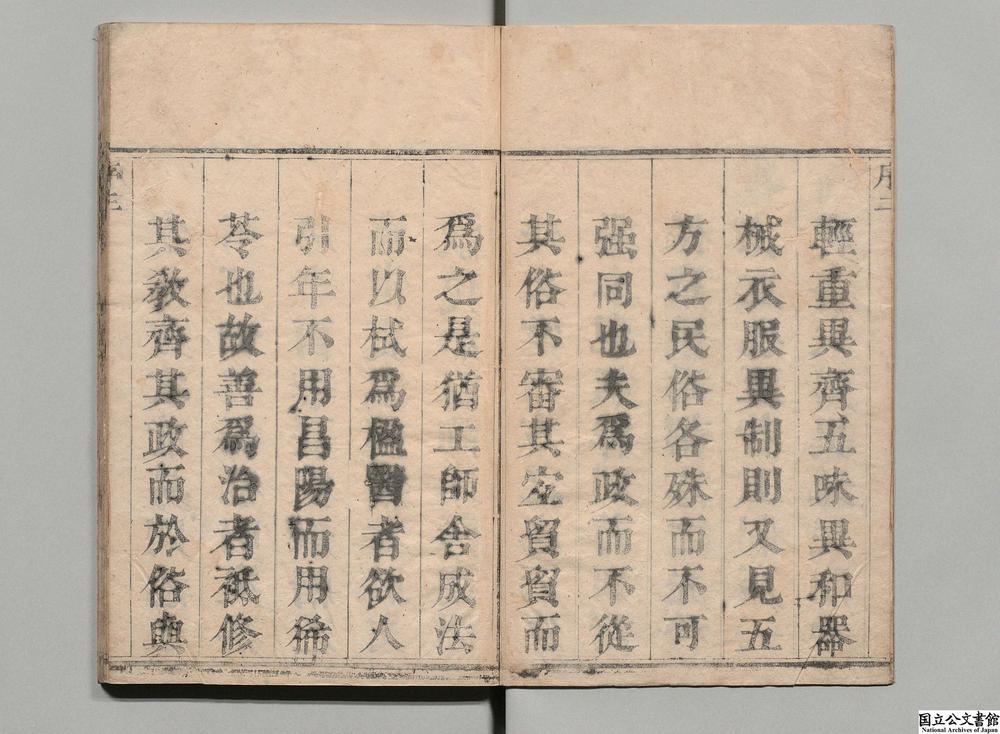 序二
輕重異齊五味異和器
械衣服異制則又見五
方之民俗各殊而不可
强同也夫爲政而不從
其俗不審其宐貿貿而
爲之是猶工師舍成法
而以栻爲楹醫者欲人
引年不用昌陽而用狶
苓也故善爲治者袛修
其敎齊其政而於俗與
序三
国立公文書館
National Archives of Japan